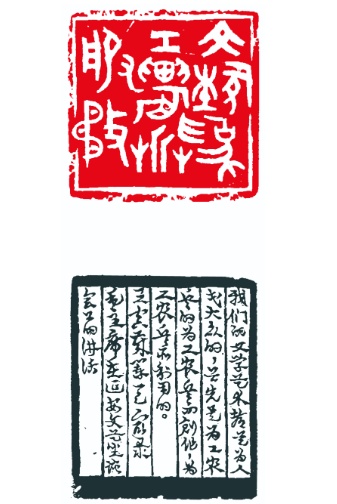 文藝為
工農兵
服務
我们的文学艺术都是为人
民大众的，首先是为工农
兵的为工农兵而创作，为
工农兵所利用的。
录
毛主席在延安文艺座谈
会上的讲话